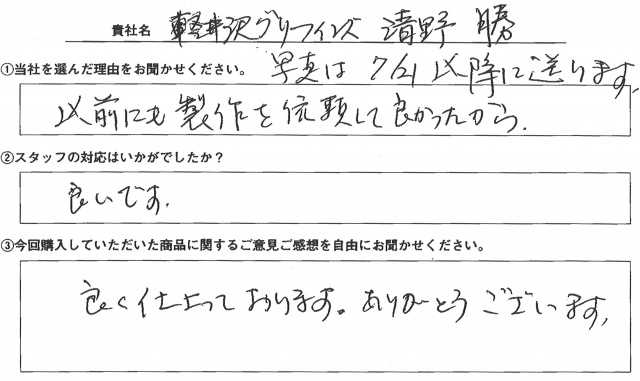 貴社名 軽井沢グリフィンズ 清野 勝
①当社を選んだ理由をお聞かせください。 写真は7/21以降に送ります。
以前にも製作を依頼して良かったから.
②スタッフの対応はいかがでしたか？
良いです.
③今回購入していただいた商品に関するご意見ご感想を自由にお聞かせください。
良く仕上っております。ありがとうございます.